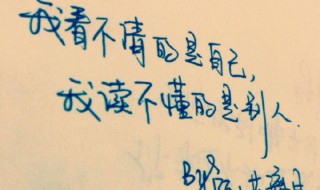 我看不清的是自己，
我读不懂的是别人.
By